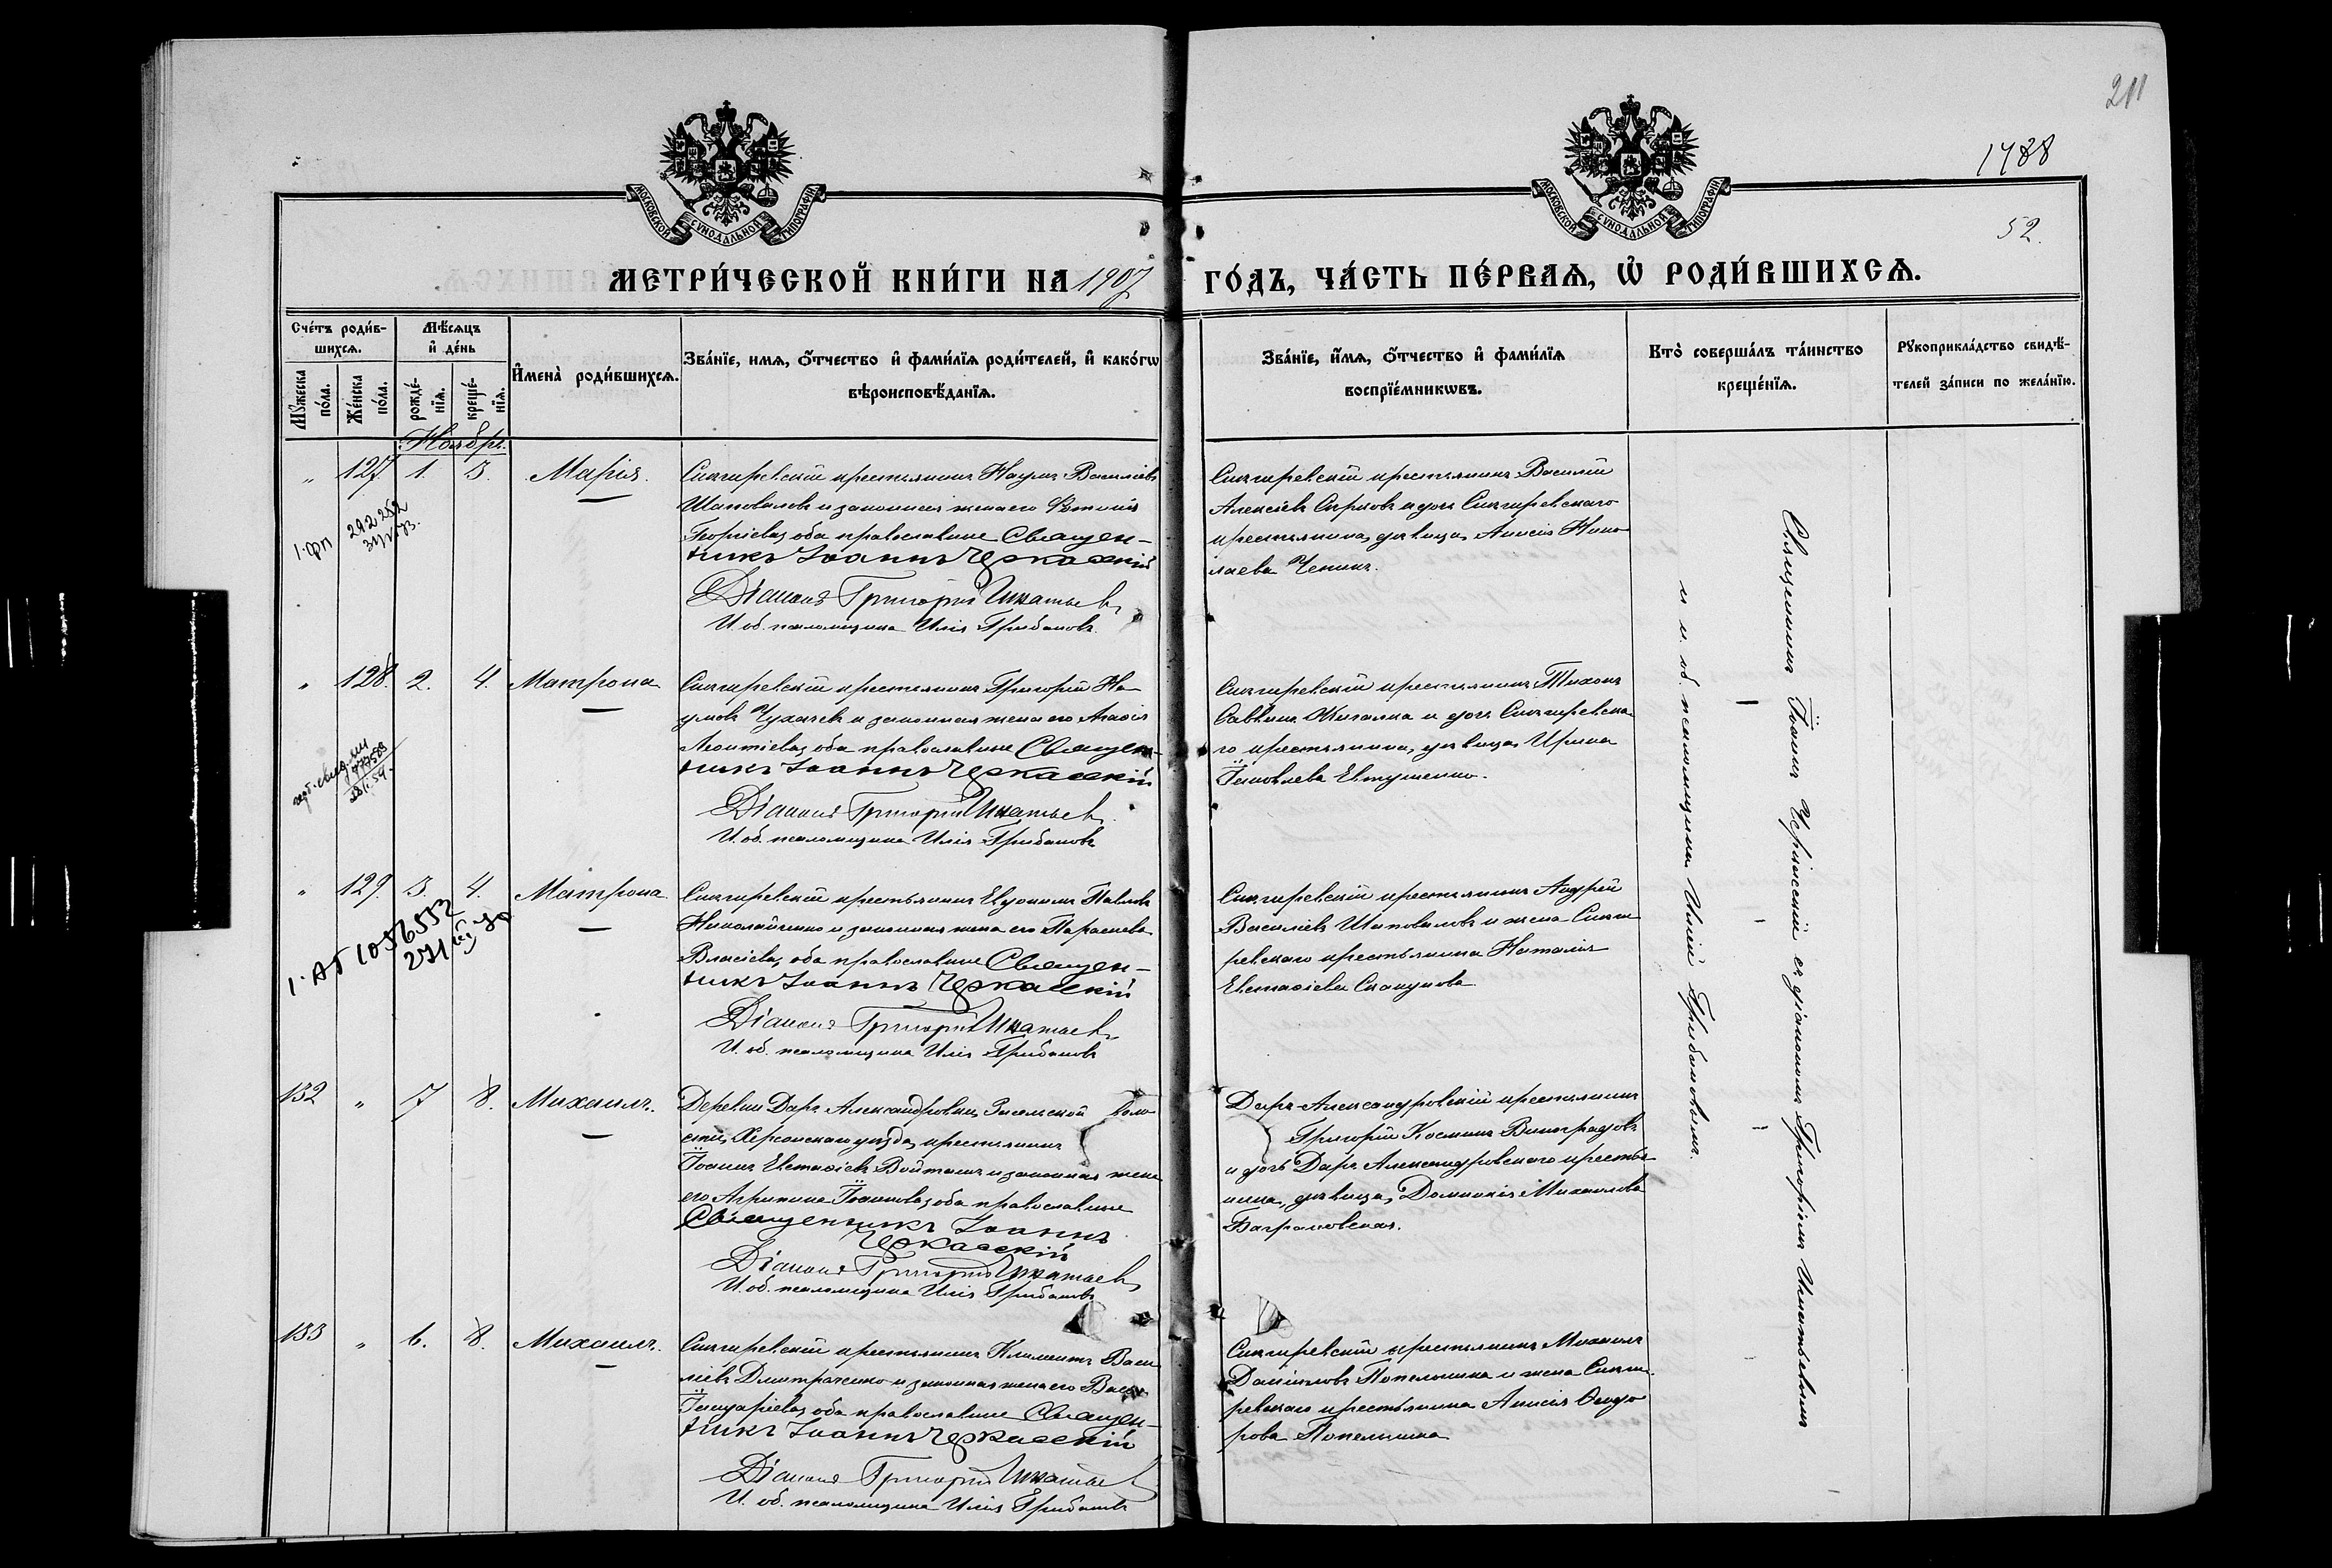 211
1788
52.
МОСКОВСКОЙ СУНОДАЛЬНОЙ ТИПОГРАФІИ
МОСКОВСКОЙ СУНОДАЛЬНОЙ ТИПОГРАФІИ
МЕТРИ́ЧЕСКОЙ КНИ́ГИ НА 1907 ГО́ДЪ, ЧА́СТЬ ПЕ́РВАѦ, Ѡ҆ РОДИ́ВШИХСѦ.
Сче́тъ роди́в-
шихсѧ.
Мꙋжеска по́ла.
Же́нска по́ла.
Мѣ́сѧцъ
и҆ де́нь
рожде́-
нїѧ.
креще́-
нїѧ.
И҆мена̀ роди́вшихсѧ.
Зва́нїе, имѧ, ѻ҆́тчество и҆ фами́лїѧ роди́телей, и҆ како́гѡ
вѣроисповѣ́данїѧ.
Зва́нїе, и҆́мѧ, ѻ҆́тчество и҆ фами́лїѧ
воспрїе́мникѡвъ.
Кто̀ соверша́лъ та́инство
креще́нїѧ.
Рꙋкоприкла́дство свидѣ́-
телей за́писи по жела́нїю.
Ноябрь.
" 127. 1. 3. Марія.
Снигиревскій крестьянинъ Наумъ Василіевъ
Шаповаловъ и законная жена его
Георгіева, оба православные Священ-
никъ Іоаннъ Черкасскій
Діаконъ Григорій Игнатьевъ
И. об. псаломщика Илія Грибановъ.
Снигиревскій крестьянинъ Василій
Алексіевъ и дочь Снигиревскаго
крестьянина, дѣвица, Анисія Нико-
лаева
292252
" 128. 2. 4. Матрона
Снигиревскій крестьянинъ Григорій На-
умовъ Чухачевъ и законная жена его Агафія
Леонтіева, оба православные Священ-
никъ Іоаннъ Черкасскій
Діаконъ Григорій Игнатьевъ
И. об. псаломщика Илія Грибановъ
Снигиревскій крестьянинъ Тихонъ
Саввинъ и дочь Снигиревска-
го крестьянина, дѣвица, Ирина
Іаковлева Евтушенко.
" 129. 3. 4. Матрона
Снигиревскій крестьянинъ Евдокимъ Павловъ
Николайченко и законная жена его Параскева
Власіева, оба православные Священ-
никъ Іоаннъ Черкасскій
Діаконъ Григорій Игнатьевъ
И. об. псаломщика Илія Грибановъ
Снигиревскій крестьянинъ Андрей
Василіевъ Шаповаловъ и жена Сниги-
ревскаго крестьянина Наталія
Евстафіева Скакунова
1. АБ 1056552
132 " 7 8. Михаилъ.
Деревни Даръ Александровки, Засельской воло-
сти, Херсонскаго уѣзда, крестьянинъ
Іоаннъ Евстафіевъ Войтанъ и законная жена
его Агрипина Іоаннова, оба православные
Священникъ Іоаннъ
Черкасскій
Діаконъ Григорій Игнатьевъ
И. об. псаломщика Илія Грибановъ
Даръ-Александровскій крестьянинъ
Григорій Косминъ Виноградовъ
и дочь Даръ Александровскаго крестья-
нина, дѣвица, Домникія Михаилова
Баграновская.
133 " 6. 8. Михаилъ.
Снигиревскій крестьянинъ Климентъ Васи-
ліевъ Дмитраченко и законная жена его Васса
Іануаріева, оба православные Священ-
никъ Іоаннъ Черкасскій
Діаконъ Григорій Игнатьевъ
И. об. псаломщика Илія Грибановъ
Снигиревскій крестьянинъ Михаилъ
Даніиловъ Попельника и жена Сниги-
ревскаго крестьянина Анисія Ѳеодо-
рова Попельника
Священникъ Іоаннъ Черкасскій съ діакономъ Григоріемъ Игнатьевымъ
и и. об. псаломщика Иліей Грибановымъ.